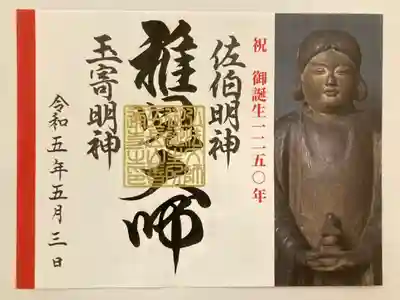 祝 御誕生一二五〇年
佐伯明神
稚児大師
玉寄明神
令和五年五月三日